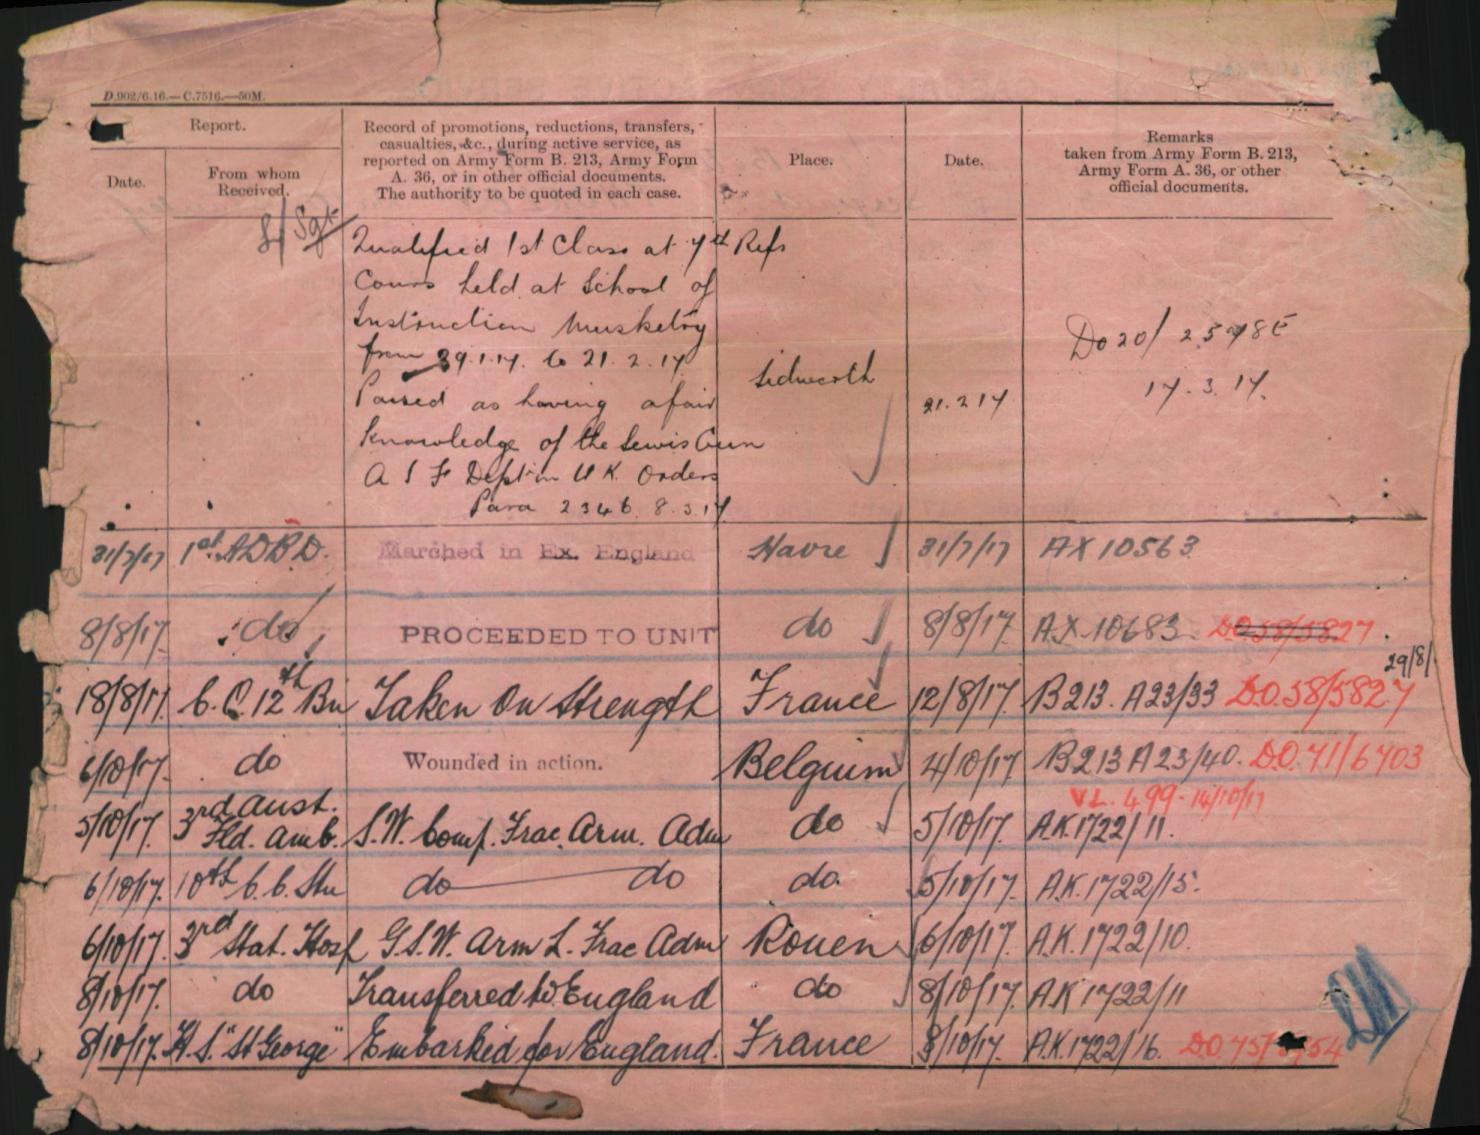 D.902/6.16.—C.7516.—50M.
Report.
Date.
From whom
Received.
Record of promotions, reductions, transfers,
casualties, &c., during active service, as
reported on Army Form B. 213, Army Form
A. 36, or in other official documents.
The authority to be quoted in each case.
Place.
Date.
Remarks
taken from Army Form B. 213,
Army Form A. 36, or other
official documents.
Sgt
Qualified 1st Class at 7th Refs
Cours held at School of
Instruction Musketry
from 29.1.17. to 21.2.17
Passed as having a fair
knowledge of the Lewis Gun
A I F Dept in U K Orders
Para 2346 8.3.17
Tidworth
21.2.17
Do 20/
17.3.17.
31/7/17 1st. A D B D. Marched in Ex. England Havre 31/7/17 AX 10563
8/8/17. do PROCEEDED TO UNIT do 8/8/17. AX 10683 D.O.58/5827
29/8/
18/8/17. C.O. 12th Bn Taken On Strength France 12/8/17. B213. A23/33 D.O.58/5827
6/10/17. do Wounded in action. Belgium 4/10/17. B213 A23/40. D.O.71/6703
V L. 499 - 14/10/17
5/10/17. 3rd Aust. Fld. Amb. S.W. Comp. Frac. Arm. Adm do 5/10/17. A.K.1722/11.
6/10/17. 10th C.C. Stn do do do. 5/10/17. A.K.1722/15.
6/10/17. 3rd Stat. Hosp G.S.W. Arm L. Frac Adm Rouen 6/10/17. A.K.1722/10.
8/10/17. do Transferred to England do 8/10/17. A.K 1722/11
8/10/17. H.S. "St George" Embarked for England. France 8/10/17. A.K.1722/16. D.O.75/